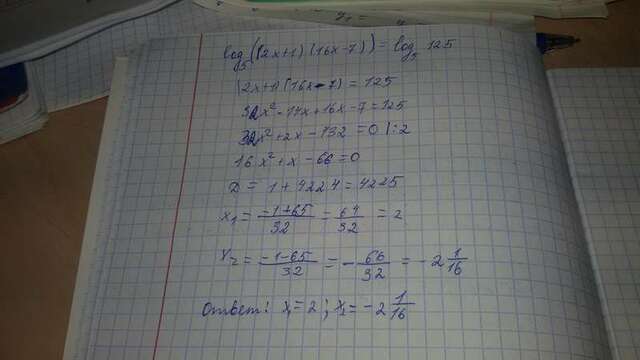 log₅((2x+1)(16x-7)) = log₅ 125
(2x+1)(16x-7) = 125
32x² - 14x + 16x - 7 = 125
32x² + 2x - 132 = 0 |:2
16x² + x - 66 = 0
D = 1 + 4224 = 4225
x₁ = (-1+65)/32 = 64/32 = 2
x₂ = (-1-65)/32 = -66/32 = -2 1/16
Ответ: x₁ = 2; x₂ = -2 1/16